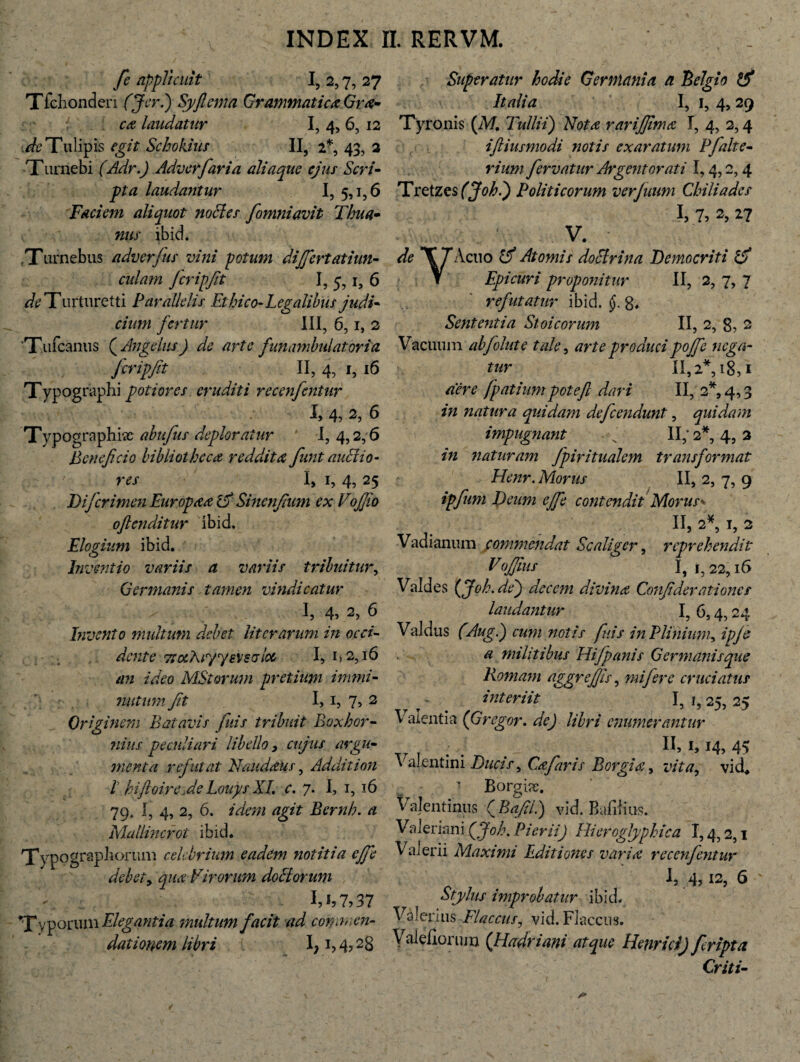 INDEX II. RERVM.
ſe applicuit I, 2, 7, 27
Tſchonderi (Jer.) Syſtema Grammaticæ Græ-
cæ laudatur I, 4, 6, 12
de Tulipis egit Schokius II, 2*, 43, 2
Turnebi (Adr.) Adverſaria aliaque ejus Scri-
pta laudantur I, 5, 1, 6
Faciem aliquot noctes ſomniavit Thua-
nus ibid.
Turnebus adverſus vini potum diſſertatiun-
culam ſcripſit I, 5, 1, 6
de Turturetti Parallelis Ethico-Legalibus judi-
cium fertur III, 6, 1, 2
Tuſcanus (Angelus) de arte funambulatoria
ſcripſit II, 4, 1, 16
Typographi potiores eruditi recenſentur
I, 4, 2, 6
Typographiæ abuſus deploratur I, 4, 2, 6
Beneficio bibliothecæ redditæ ſunt auctio-
res I, 1, 4, 25
Diſcrimen Europææ & Sinenſium ex Voſſio
oſtenditur ibid.
Elogium ibid.
Inventio variis a variis tribuitur,
Germanis tamen vindicatur
I, 4, 2, 6
Invento multum debet literarum in occi-
dente παλιγγενεσία I, 1, 2, 16
an ideo MStorum pretium immi-
nutum ſit I, 1, 7, 2
Originem Batavis ſuis tribuit Boxhor-
nius peculiari libello, cujus argu-
menta refutat Naudæus, Addition
l hiſtoire de Louys XI. c. 7. I, 1, 16
79. I, 4, 2, 6. idem agit Bernh. a
Mallincrot ibid.
Typographorum celebrium eadem notitia eſſe
debet, quæ Virorum doctorum
I, 1, 7, 37
Typorum Elegantia multum facit ad commen-
dationem libri I, 1, 4, 28
Superatur hodie Germania a Belgio &
Italia I, 1, 4, 29
Tyronis (M. Tullii) Notæ rariſſimæ I, 4, 2, 4
iſtiusmodi notis exaratum Pſalte-
rium ſervatur Argentorati I, 4, 2, 4
Tretzes (Joh.) Politicorum verſuum Chiliades
I, 7, 2, 27
V.
de VAcuo & Atomis doctrina Democriti &
Epicuri proponitur II, 2, 7, 7
refutatur ibid. §. 8.
Sententia Stoicorum II, 2, 8, 2
Vacuum abſolute tale, arte produci poſſe nega-
tur II, 2*, 18, 1
aëre ſpatium poteſt dari II, 2*, 4, 3
in natura quidam defcendunt, quidam
impugnant II, 2*, 4, 2
in naturam ſpiritualem transformat
Henr. Morus II, 2, 7, 9
ipſum Deum eſſe contendit Morus
II, 2*, 1, 2
Vadianum commendat Scaliger, reprehendit
Voſſius I, 1, 22, 16
Valdes (Joh. de) decem divinæ Conſiderationes
laudantur I, 6, 4, 24
Valdus (Aug.) cum notis ſuis in Plinium, ipſe
a militibus Hiſpanis Germanisque
Romam aggreſſis, miſere cruciatus
interiit I, 1, 25, 25
Valentia (Gregor. de) libri enumerantur
II, 1, 14, 45
Valentini Ducis, Cæſaris Borgiæ, vita, vid.
Borgiæ.
Valentinus (Baſil.) vid. Baſilius.
Valeriani (Joh. Pierii) Hieroglyphica I, 4, 2, 1
Valerii Maximi Editiones variæ recenſentur
I, 4, 12, 6
Stylus improbatur ibid.
Valerius Flaccus, vid. Flaccus.
Valeſiorum (Hadriani atque Henrici) ſcripta
Criti-